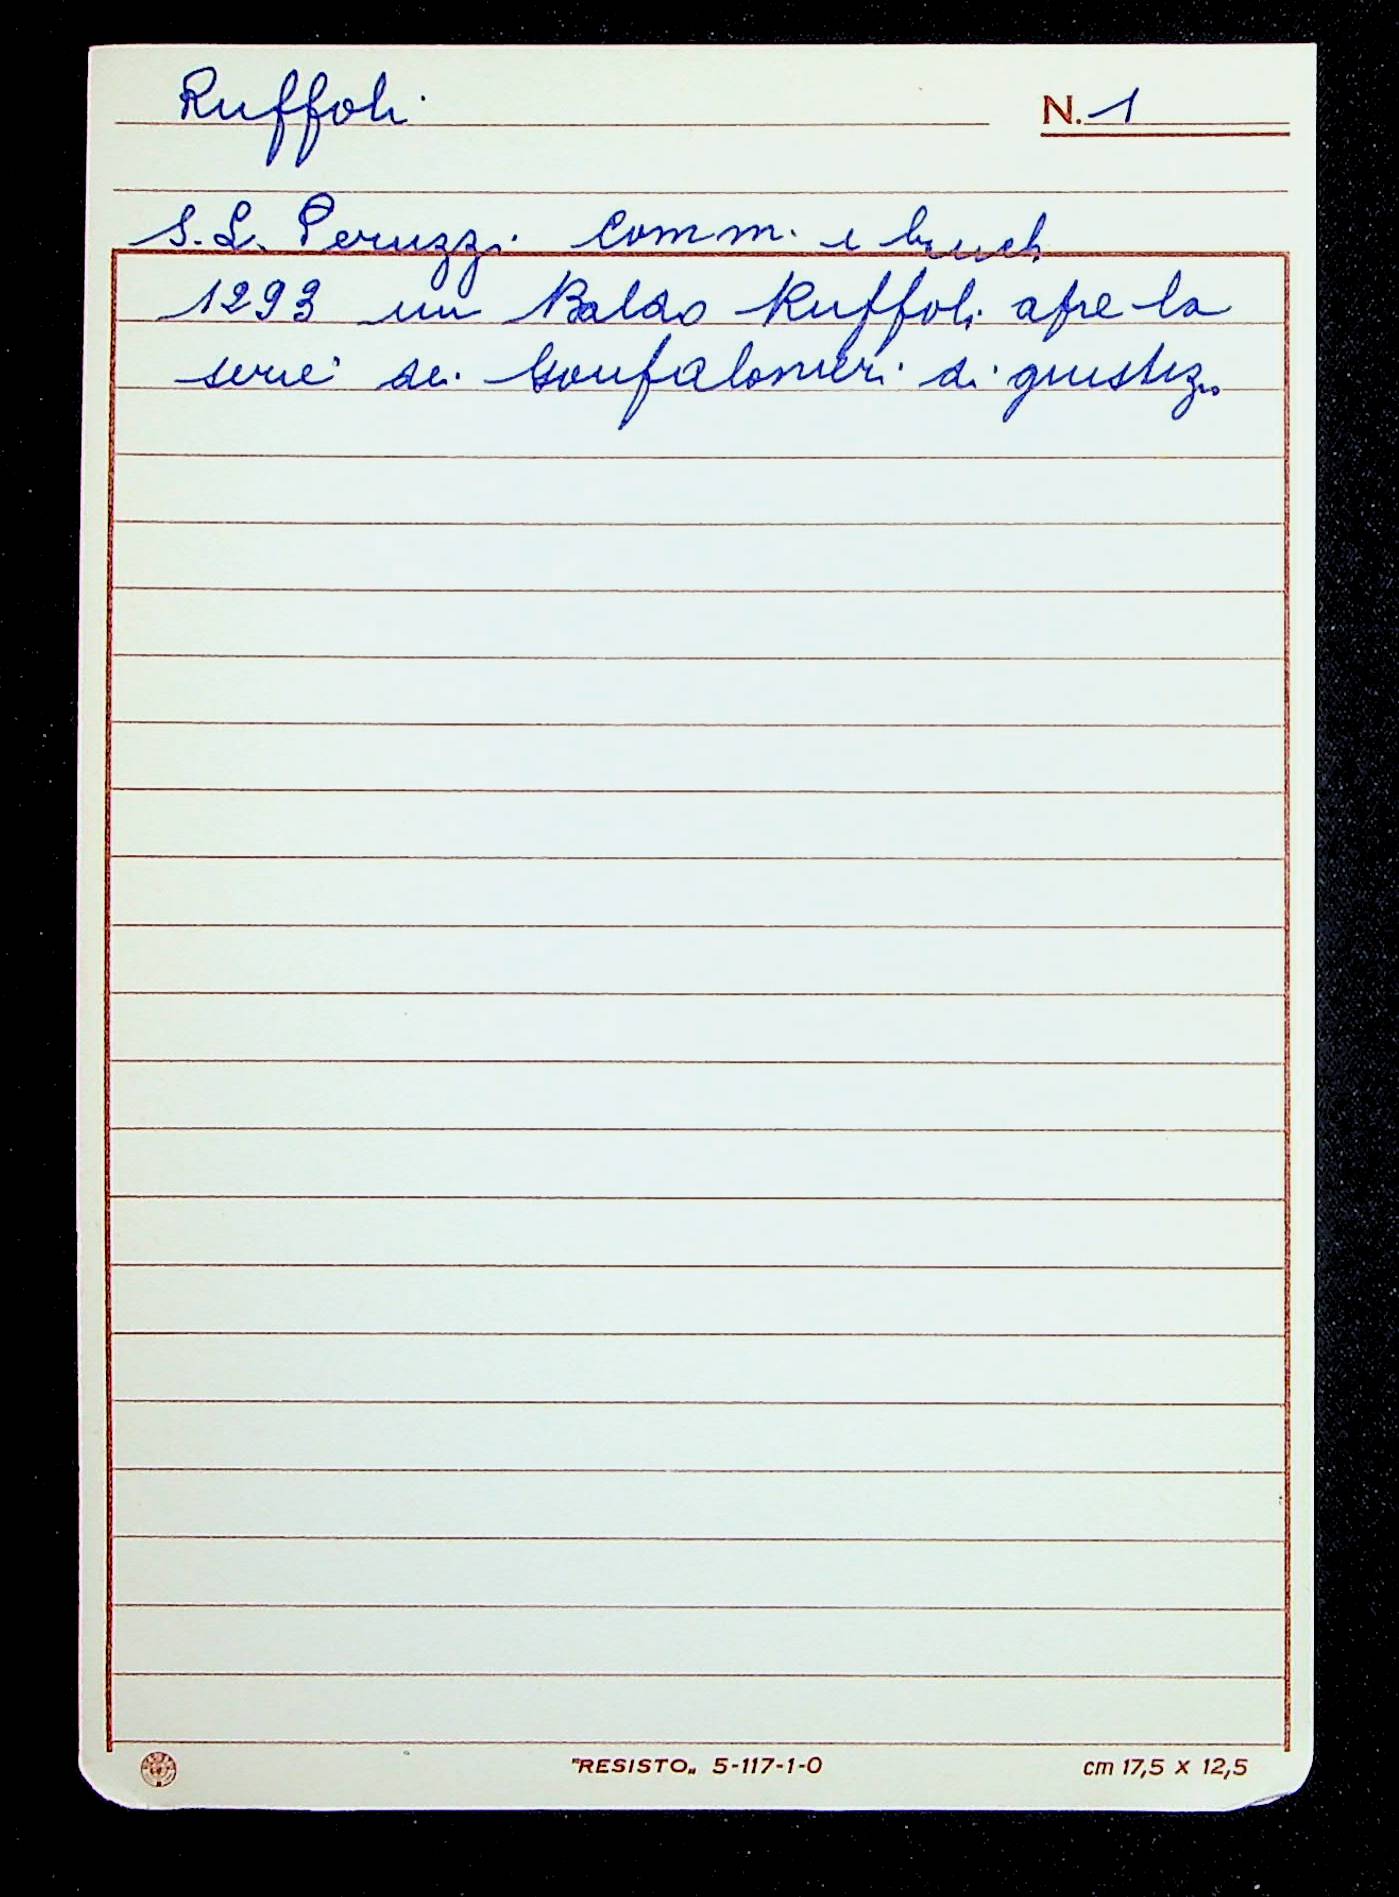 Ruffoli
N. 1
S. L. Peruzzi Comm. e banch.
1293 un Baldo Ruffoli apre la
serie dei Gonfalonieri di giustiz.
"RESISTO" 5-117-1-0
cm 17,5 x 12,5